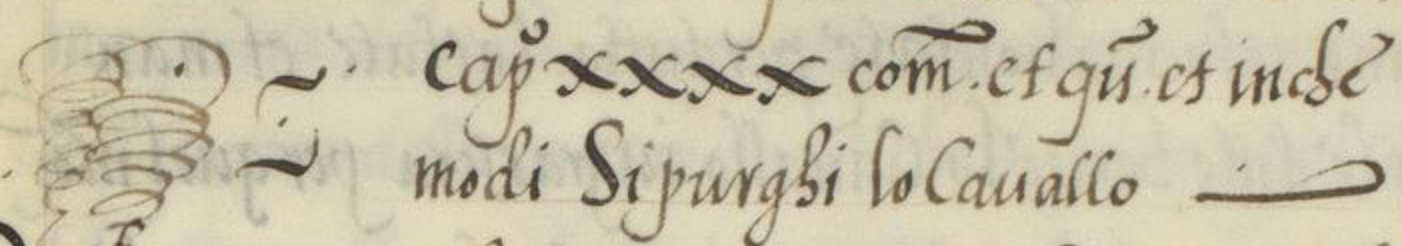 Capº xxxx com̃. et qũ. et in che
modi Si purghi lo Cavallo